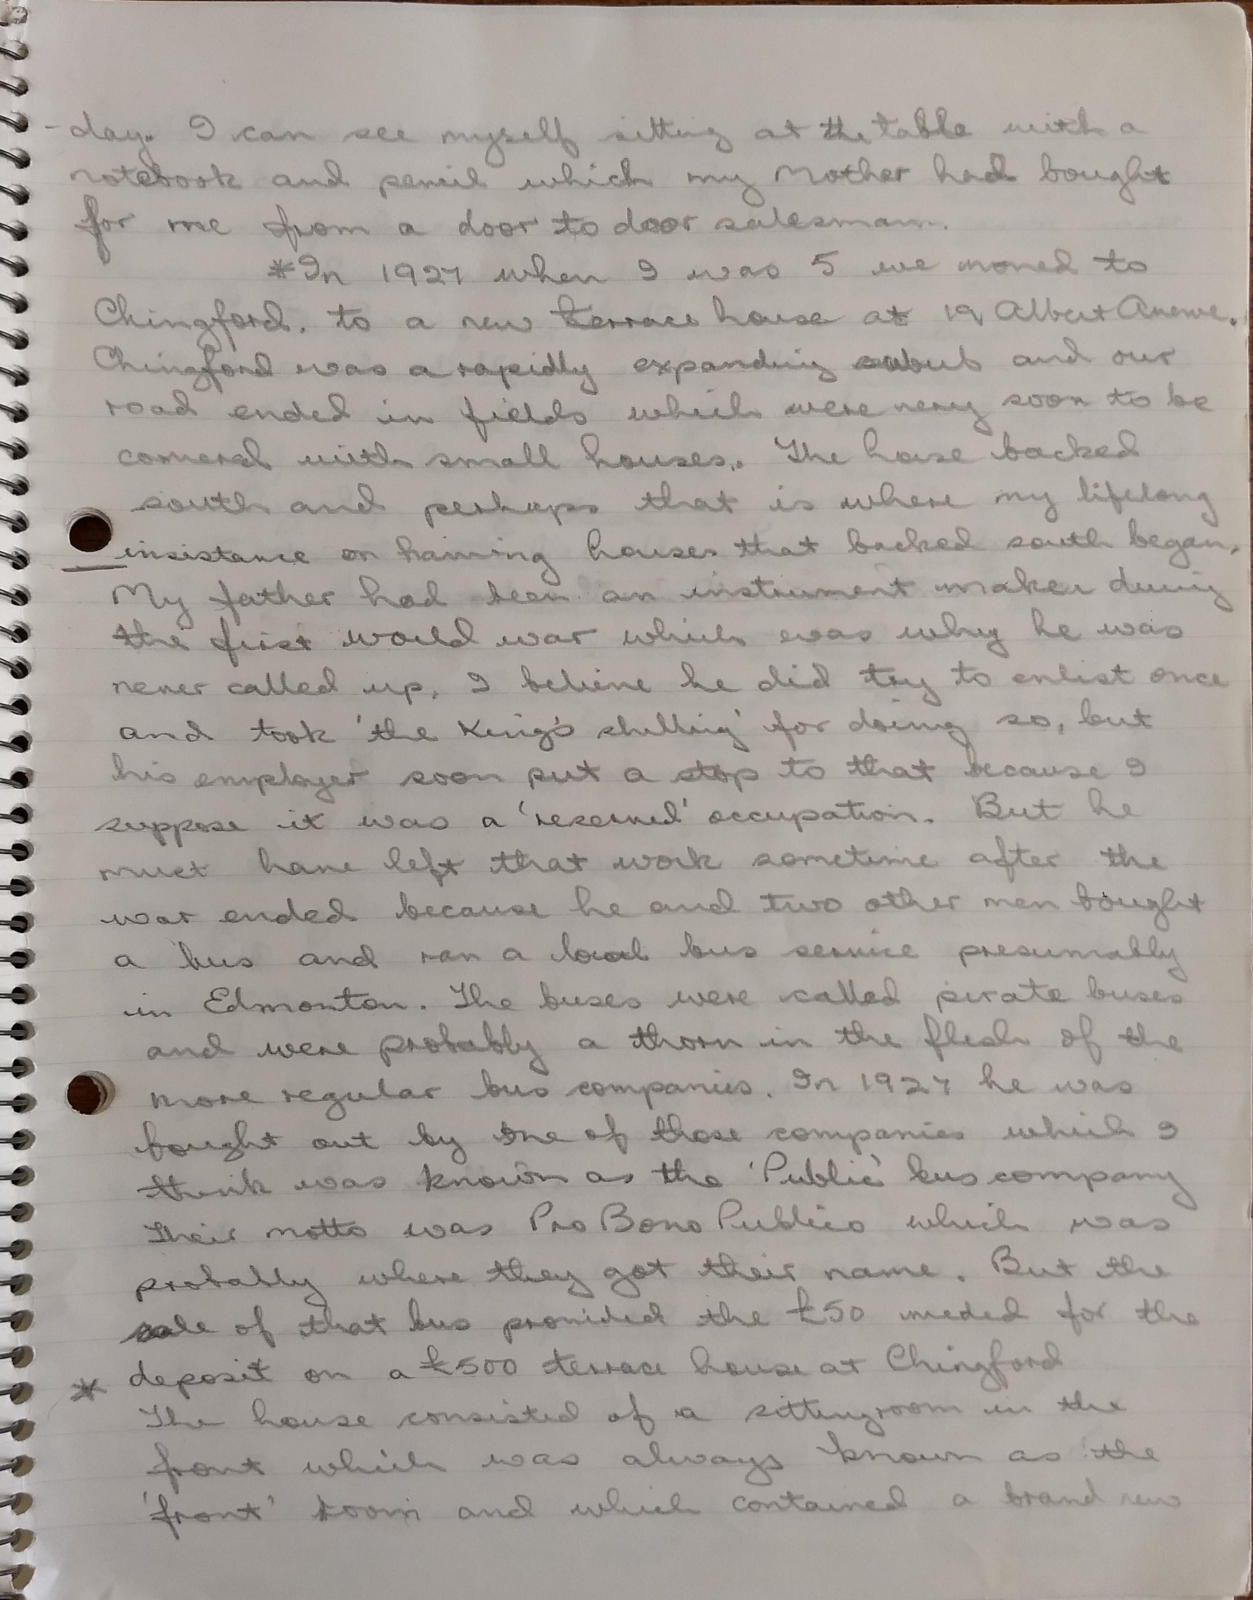 - day. I can see myself sitting at the table with a
notebook and pencil which my Mother had bought
for me from a door to door salesman.
*In 1927 when I was 5 we moved to
Chingford. to a new terrace house at 19 Albert Avenue.
Chingford was a rapidly expanding suburb and our
road ended in fields which were very soon to be
covered with small houses. The house backed
south and perhaps that is where my lifelong
insistance on having houses that backed south began.
My father had been an instrument maker during
the first world war which was why he was
never called up. I believe he did try to enlist once
and took 'the King's shilling' for doing so, but
his employer soon put a stop to that because I
suppose it was a 'reserved' occupation. But he
must have left that work sometime after the
war ended because he and two other men bought
a bus and ran a local bus service presumably
in Edmonton. The buses were called pirate buses
and were probably a thorn in the flesh of the
more regular bus companies. In 1927 he was
bought out by one of those companies which I
think was known as the 'Public' bus company
Their motto was Pro Bono Publico which was
probably where they got their name. But the
sale of that bus provided the £50 needed for the
* deposit on a £500 terrace house at Chingford
The house consisted of a sittingroom in the
front which was always known as the
'front' room and which contained a brand new